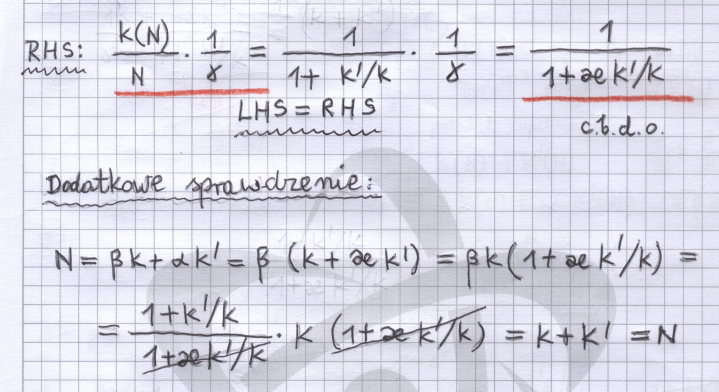 RHS: k(N)/N · 1/γ = 1/(1+ k'/k) · 1/γ = 1/(1+æ k'/k)
LHS = RHS
c.b.d.o.
Dodatkowe sprawdzenie:
N = βk + αk' = β (k + æ k') = βk(1+ æ k'/k) =
= (1+k'/k)/(1+æk'/k) · k (1+æ k'/k) = k+k' = N